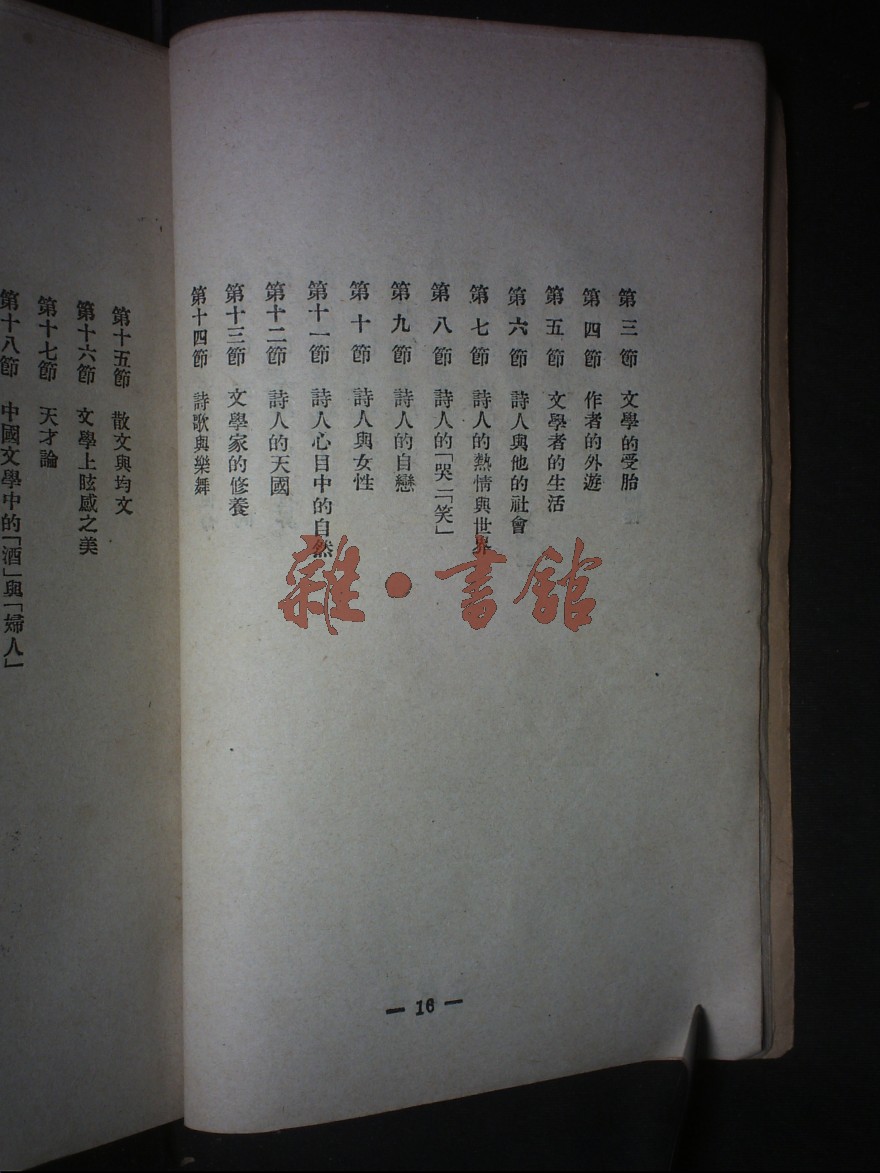 第三節 文學的受胎
第四節 作者的外遊
第五節 文學者的生活
第六節 詩人與他的社會
第七節 詩人的熱情與世界
第八節 詩人的「哭」「笑」
第九節 詩人的自戀
第十節 詩人與女性
第十一節 詩人心目中的自然
第十二節 詩人的天國
第十三節 文學家的修養
第十四節 詩歌與樂舞
— 16 —
第十五節 散文與均文
第十六節 文學上眩惑之美
第十七節 天才論
第十八節 中國文學中的「酒」與「婦人」
雜·書館